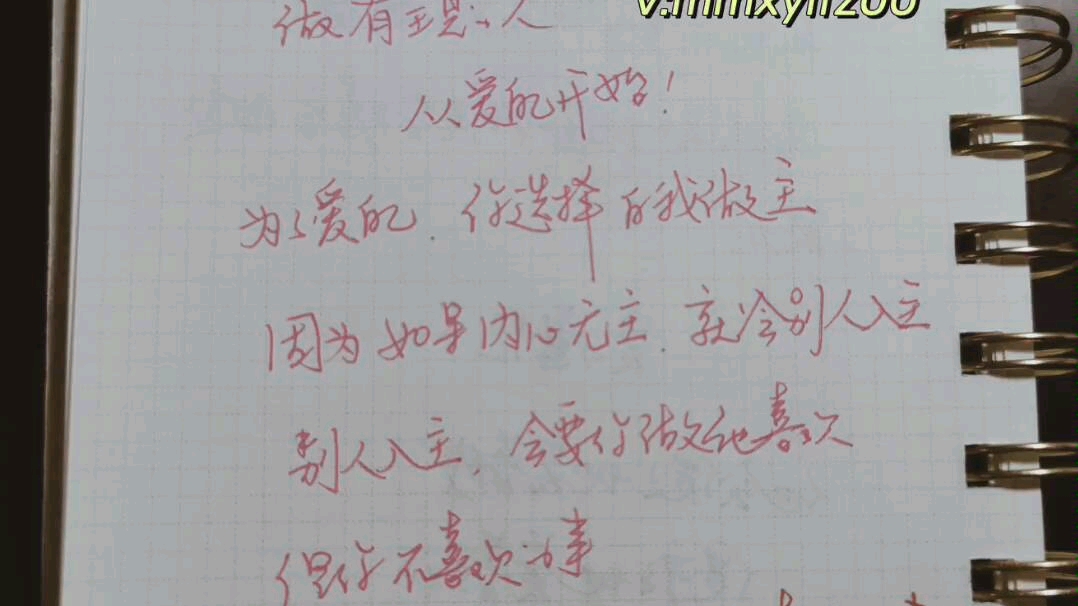 v.mmxyh200
做有主见的人
从爱的开始！
为了爱的.你选择自我做主
因为如果内心无主.就会别人入主
别人入主.会要你做他喜欢
但你不喜欢的事